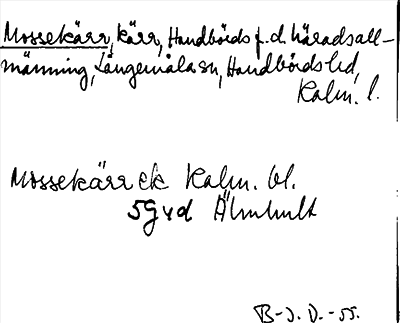 Mossekärr, kärr, Handbörds f.d. häradsall-
männing, Långemåla sn, Handbörds hd,
Kalm. l.
Mossekärr ek Kalm. bl.
5G vd Älmhult
B-J. D. -55.